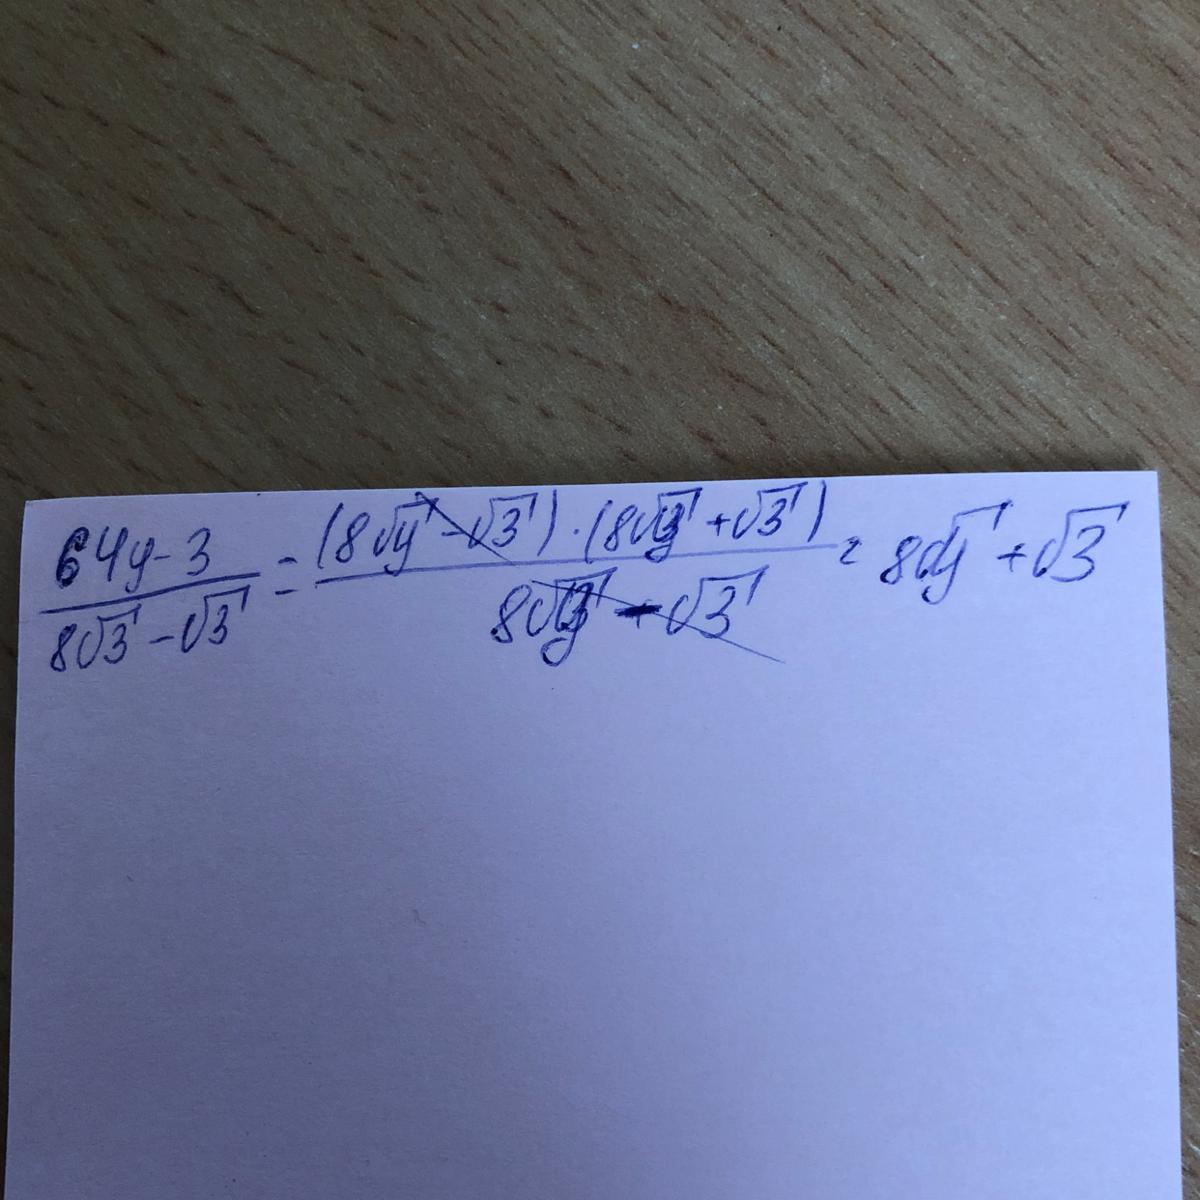 (64y-3)/(8√3-√3) = ((8√y-√3)·(8√y+√3))/(8√y-√3) = 8√y+√3